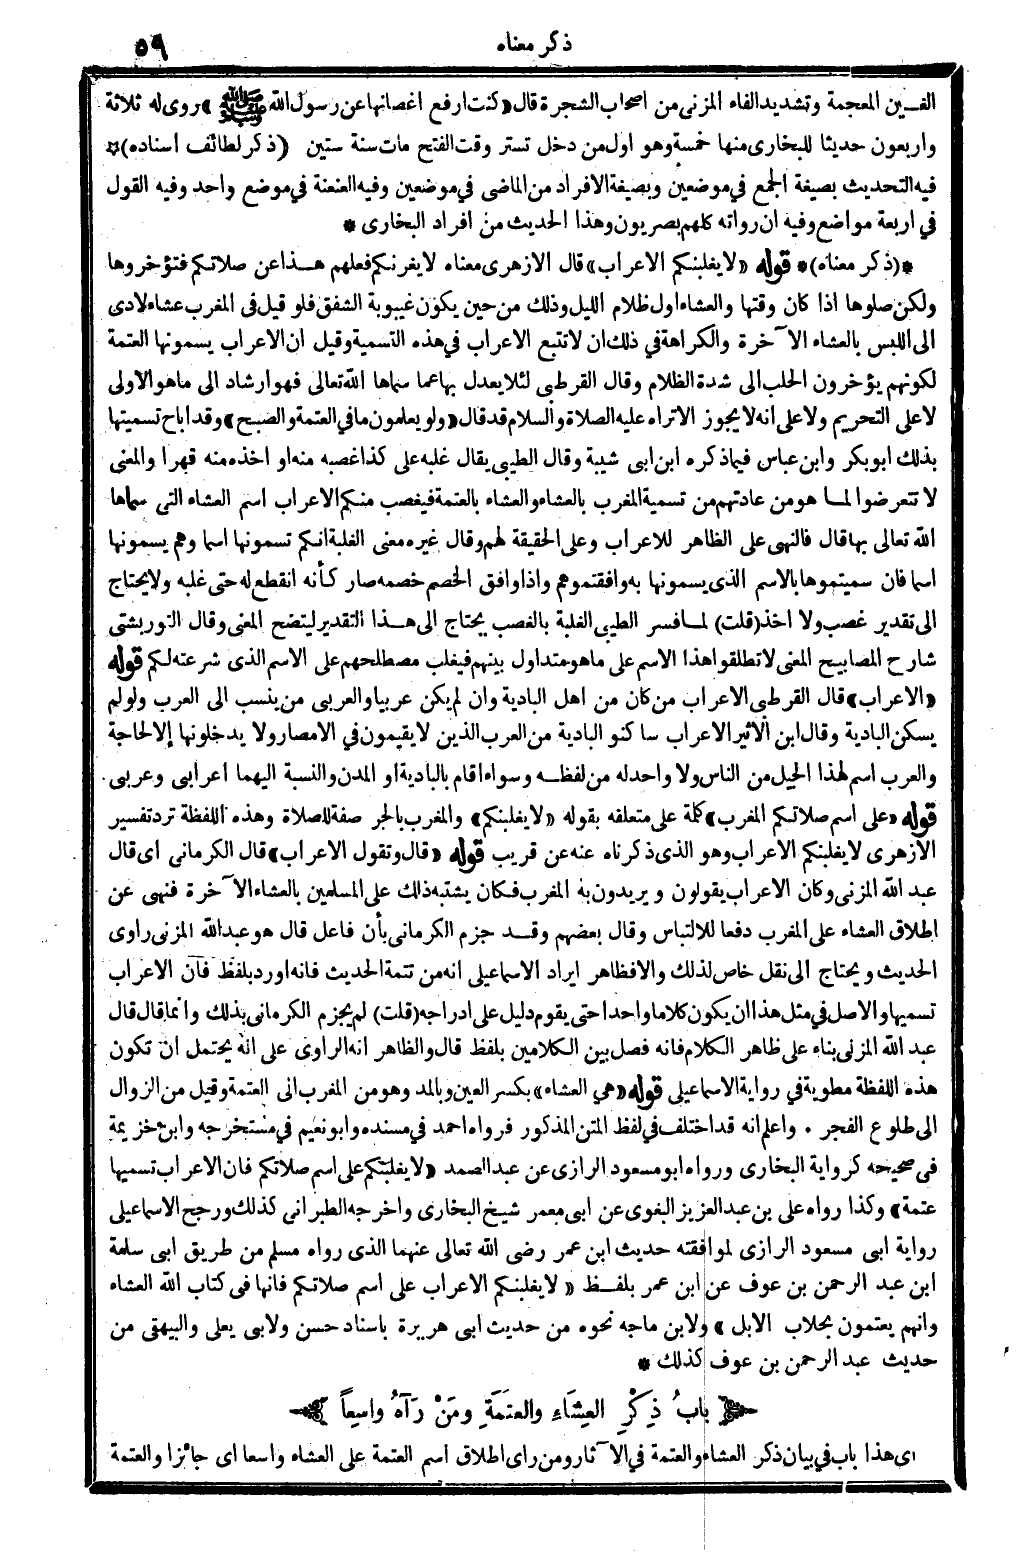 ذكر معناه
٥٩
الغين المعجمة وتشديد الفاء المزنى من اصحاب الشجرة قال «كنت ارفع اغصانها عن رسول الله ﷺ» روى له ثلاثة
واربعون حديثا للبخارى منها خمسة وهو اول من دخل تستر وقت الفتح مات سنة ستين (ذكر لطائف اسناده)*
فيه التحديث بصيغة الجمع في موضعين وبصيغة الافراد من الماضى في موضعين وفيه العنعنة في موضع واحد وفيه القول
في اربعة مواضع وفيه ان رواته كلهم بصريون وهذا الحديث من افراد البخارى *
*(ذكر معناه)* قوله «لا يغلبنكم الاعراب» قال الازهرى معناه لا يغرنكم فعلهم هذا عن صلاتكم فتؤخروها
ولكن صلوها اذا كان وقتها والعشاء اول ظلام الليل وذلك من حين يكون غيبوبة الشفق فلو قيل فى المغرب عشاء لادى
الى اللبس بالعشاء الآخرة والكراهة في ذلك ان لا تتبع الاعراب في هذه التسمية وقيل ان الاعراب يسمونها العتمة
لكونهم يؤخرون الحلب الى شدة الظلام وقال القرطبى لئلا يعدل بها عما سماها الله تعالى فهو ارشاد الى ما هو الاولى
لا على التحريم ولا على انه لا يجوز الا تراه عليه الصلاة والسلام قد قال «ولو يعلمون ما في العتمة والصبح» وقد اباح تسميتها
بذلك ابو بكر وابن عباس فيما ذكره ابن ابى شيبة وقال الطيبى يقال غلبه على كذا غصبه منه او اخذه منه قهرا والمعنى
لا تتعرضوا لما هو من عادتهم من تسمية المغرب بالعشاء والعشاء بالعتمة فيغصب منكم الاعراب اسم العشاء التى سماها
الله تعالى بها قال فالنهى على الظاهر للاعراب وعلى الحقيقة لهم وقال غيره معنى الغلبة انكم تسمونها اسما وهم يسمونها
اسما فان سميتموها بالاسم الذى يسمونها به وافقتموهم واذا وافق الخصم خصمه صار كأنه انقطع له حتى غلبه ولا يحتاج
الى تقدير غصب ولا اخذ (قلت) لما فسر الطيبى الغلبة بالغصب يحتاج الى هذا التقدير ليتضح المعنى وقال التوربشتى
شارح المصابيح المعنى لا تطلقوا هذا الاسم على ما هو متداول بينهم فيغلب مصطلحهم على الاسم الذى شرعته لكم قوله
«الاعراب» قال القرطبى الاعراب من كان من اهل البادية وان لم يكن عربيا والعربى من ينسب الى العرب ولو لم
يسكن البادية وقال ابن الاثير الاعراب ساكنو البادية من العرب الذين لا يقيمون في الامصار ولا يدخلونها إلا لحاجة
والعرب اسم لهذا الجيل من الناس ولا واحد له من لفظه وسواء اقام بالبادية او المدن والنسبة اليهما اعرابى وعربى
قوله «على اسم صلاتكم المغرب» كلمة على متعلقه بقوله «لا يغلبنكم» والمغرب بالجر صفة للصلاة وهذه اللفظة ترد تفسير
الازهرى لا يغلبنكم الاعراب وهو الذى ذكرناه عنه عن قريب قوله «قال وتقول الاعراب» قال الكرمانى اى قال
عبد الله المزنى وكان الاعراب يقولون ويريدون به المغرب فكان يشتبه ذلك على المسلمين بالعشاء الآخرة فنهى عن
اطلاق العشاء على المغرب دفعا للالتباس وقال بعضهم وقد جزم الكرمانى بأن فاعل قال هو عبد الله المزنى راوى
الحديث ويحتاج الى نقل خاص لذلك والا فظاهر ايراد الاسماعيلى انه من تتمة الحديث فانه اورد بلفظ فان الاعراب
تسميها والاصل في مثل هذا ان يكون كلاما واحدا حتى يقوم دليل على ادراجه (قلت) لم يجزم الكرمانى بذلك وانما قال قال
عبد الله المزنى بناء على ظاهر الكلام فانه فصل بين الكلامين بلفظ قال والظاهر انه الراوى على انه يحتمل ان تكون
هذه اللفظة مطوية في رواية الاسماعيلى قوله «هي العشاء» بكسر العين وبالمد وهو من المغرب الى العتمة وقيل من الزوال
الى طلوع الفجر . واعلم انه قد اختلف في لفظ المتن المذكور فرواه احمد في مسنده وابو نعيم في مستخرجه وابن خزيمة
فى صحيحه كرواية البخارى ورواه ابو مسعود الرازى عن عبد الصمد «لا يغلبنكم على اسم صلاتكم فان الاعراب تسميها
عتمة» وكذا رواه على بن عبد العزيز البغوى عن ابى معمر شيخ البخارى واخرجه الطبرانى كذلك ورجح الاسماعيلى
رواية ابى مسعود الرازى لموافقته حديث ابن عمر رضى الله تعالى عنهما الذى رواه مسلم من طريق ابى سلمة
ابن عبد الرحمن بن عوف عن ابن عمر بلفظ « لا يغلبنكم الاعراب على اسم صلاتكم فانها فى كتاب الله العشاء
وانهم يعتمون بحلاب الابل » ولابن ماجه نحوه من حديث ابى هريرة باسناد حسن ولابى يعلى والبيهقى من
حديث عبد الرحمن بن عوف كذلك *
بابُ ذِكْرِ العِشَاءِ والعتَمَةِ ومَنْ رَآهُ واسِعاً
اى هذا باب في بيان ذكر العشاء والعتمة في الآثار ومن راى اطلاق اسم العتمة على العشاء واسعا اى جائزا والعتمة